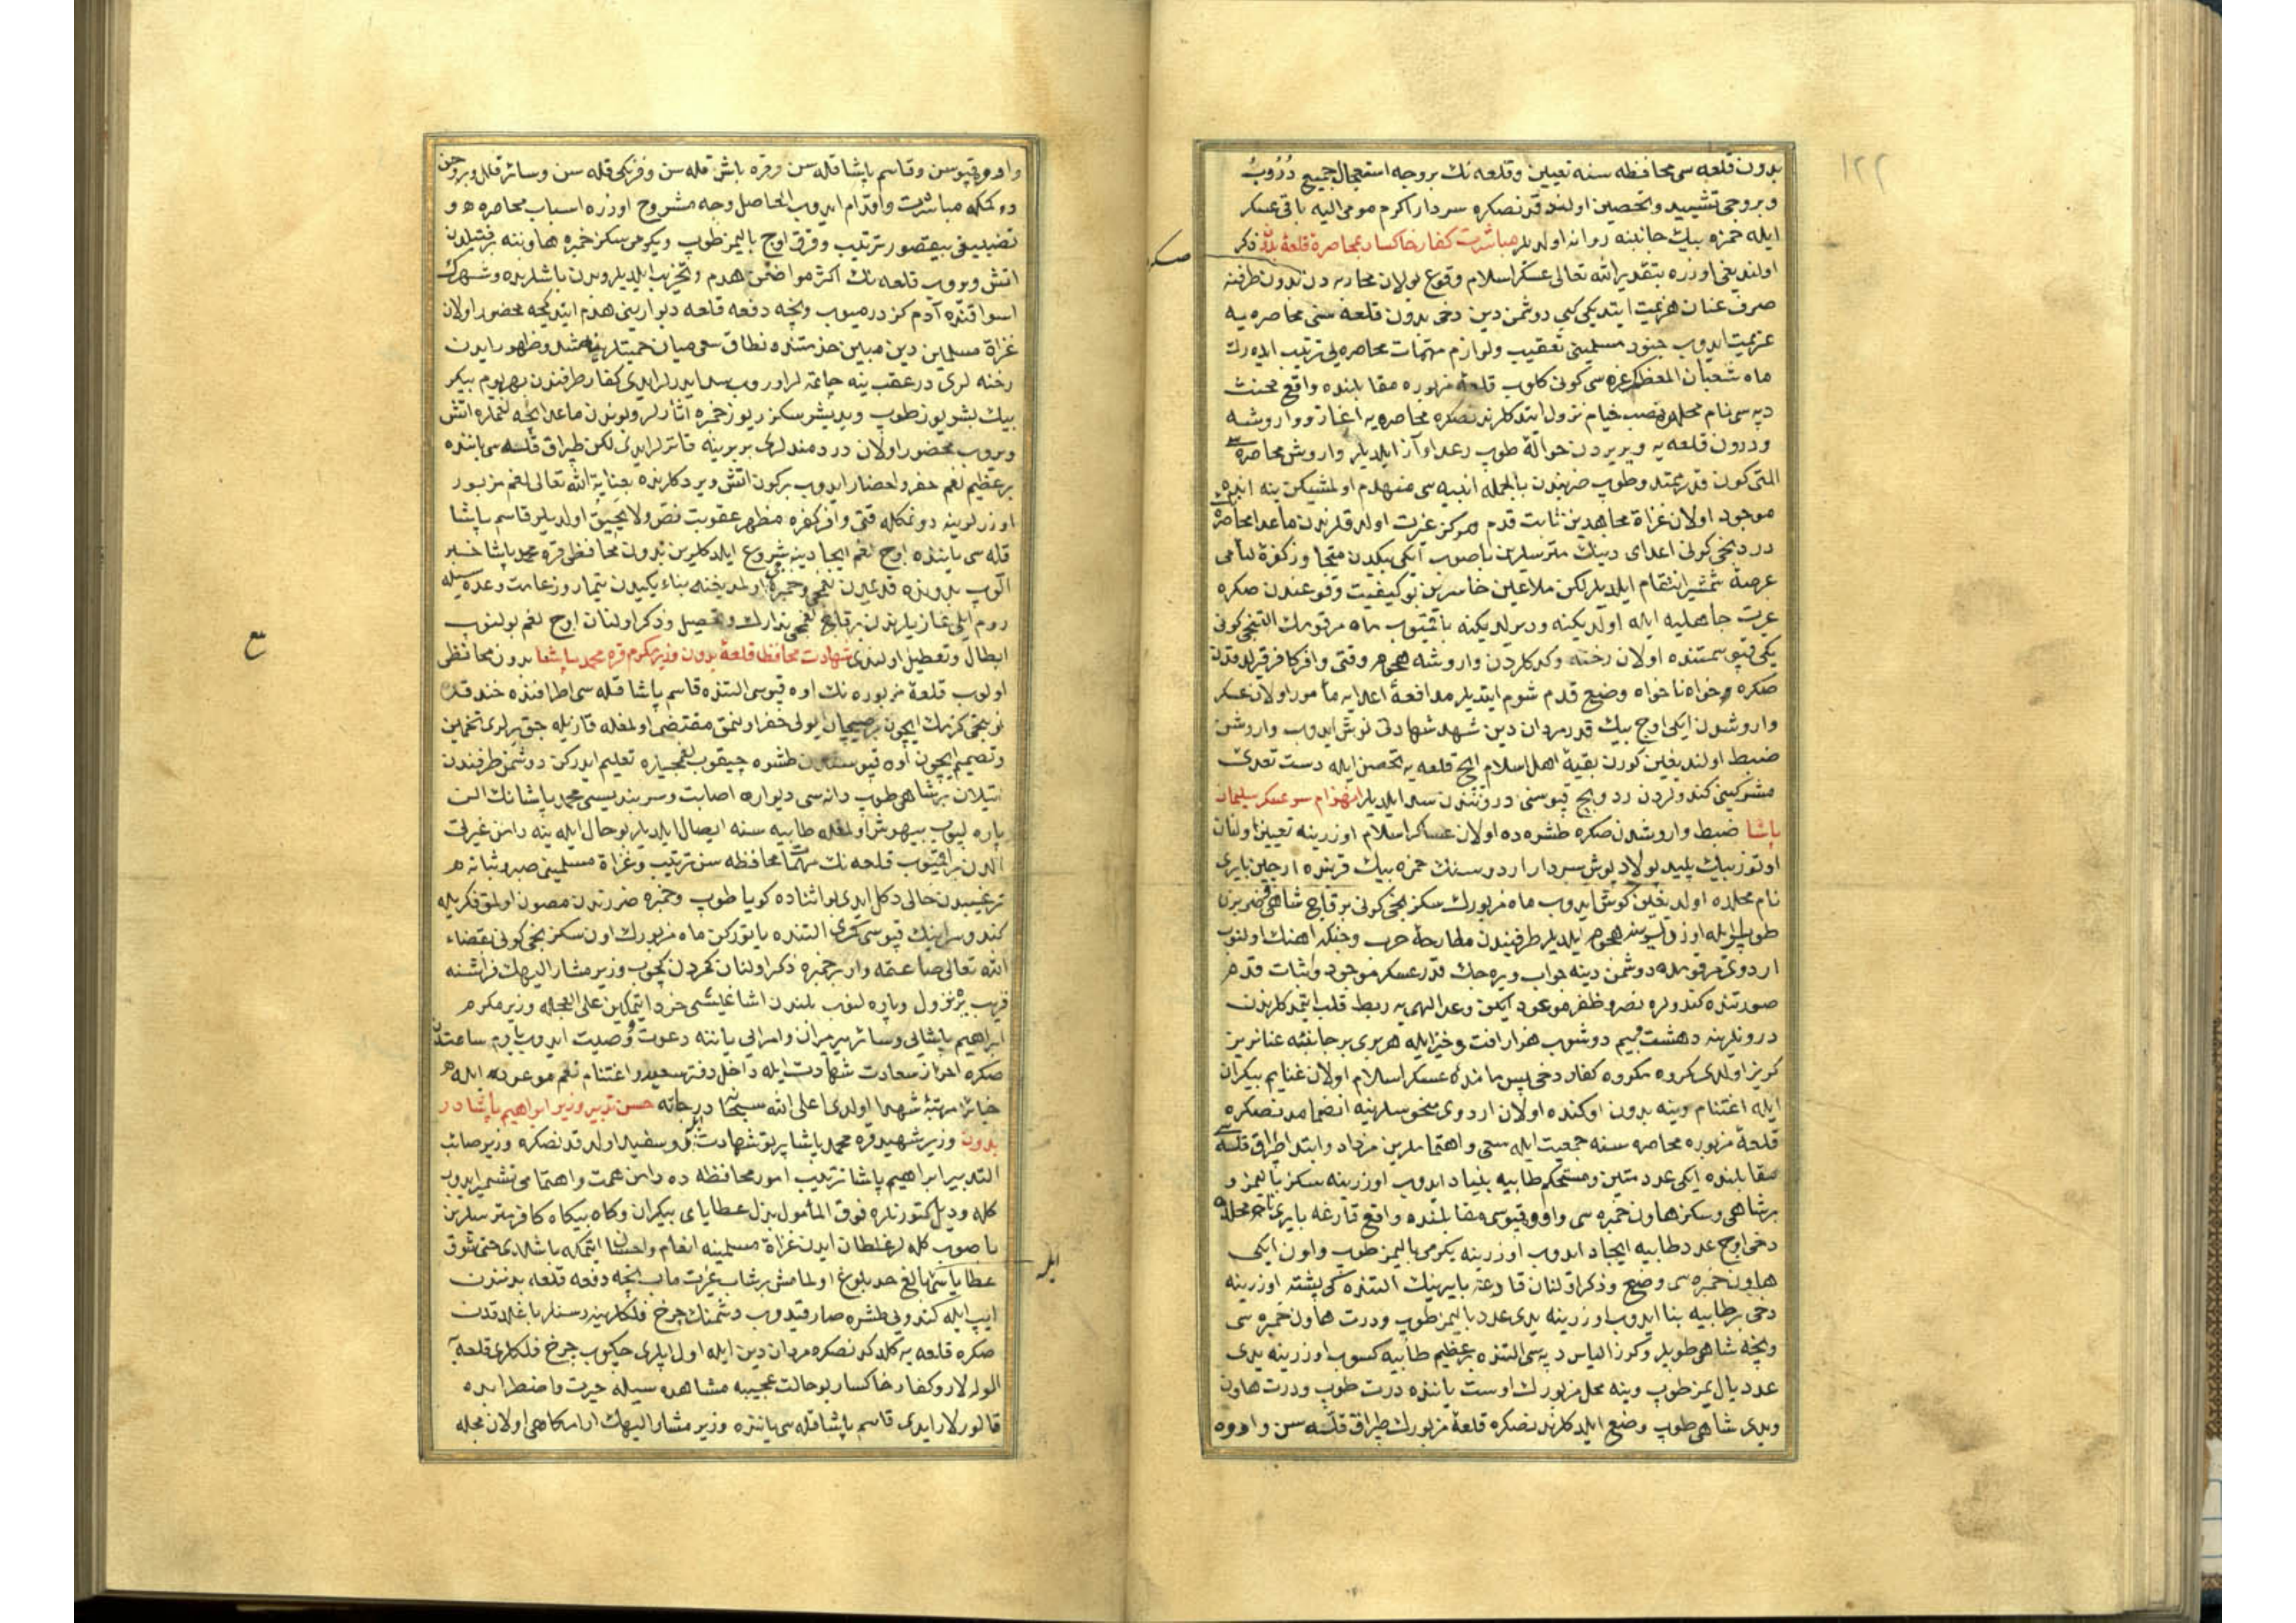 ١٢٢
بدون قلعه سی محافظه سنه تعیین و قلعه نك بروجه استعجال جمیع دُرُوبُ
و بروجی تشیید و تحصین اولندقدنصكره سردار اكرم مومی الیه باقی عسكر
ایله حمزه بیك جانبنه روانه اولدیلر مباشرت كفار خاكسار بمحاصرهٔ قلعهٔ بدون ذكر
اولندیغی اوزره بتقدیر الله تعالی عسكر اسلام وقوع بولان محاربه دن بدون طرفنه
صرف عنان هزیمت ایتدیكی كبی دوشمن دین دخی بدون قلعه سنی محاصره یه
عزیمت ایدوب جنود مسلمینی تعقیب و لوازم مهمات محاصره یی ترتیب ایده رك
ماه شعبان المعظمك غره سی كونی كلوب قلعهٔ مزبوره مقابلنده واقع محنت
دپه سی نام محلده نصب خیام نزول ایتدكلرندنصكره محاصره یه آغاز و واروشنه
و درون قلعه یه ویریردن حوالهٔ طوپ رعد آواز ایلدیلر واروش محاصره سی
التی كون قدر ممتد و طوپ ضربندن بالجمله ابنیه سی منهدم اولمشیكن ینه انده
موجود اولان غزاة مجاهدین ثابت قدم مركز غیرت اولدقلرندن ماعدا محاصره نك
دردنجی كونی اعدای دینك متریسلرین باصوب ایكی بیكدن متجاوز كفرهٔ لئامی
عرضهٔ شمشیر انتقام ایلدیلر لكن ملاعین خاسرین بو كیفیت وقوعندن صكره
غیرت جاهلیه ایله اولدیكنه ودیرلدیكنه باقمیوب ماه مرقومك التنجی كونی
یكی قپو سمتنده اولان رخنه و كدكلردن واروشه هجوم و قتی وافر كافر قریلدقدن
صكره خواه ناخواه وضع قدم شوم ایتدیلر مدافعهٔ اعدایه مأمور اولان عسكر
واروشدن ایكی اوچ بیك قدر مردان دین شهد شهادتی نوش ایدوب واروشك
ضبط اولندیغین كورن بقیهٔ اهل اسلام ایچ قلعه یه تحصن ایله دست تعدی
مشركینی كندولردن رد و ایچ قپوسنی دروننـدن سد ایلدیلر انهزام سرعسكر سلیمان
پاشا ضبط واروشدن صكره طشره ده اولان عساكر اسلام اوزرینه تعیین اولنان
اوتوز بیك پلید پولاد پوش سردار اردوسنك حمزه بیك قربنده ارجین بایری
نام محلده اولدیغین كوش ایدوب ماه مزبورك سكزنجی كونی برقاچ شاهی ضربزن
طوپلریله اوزرلرینه هجوم ایلدیلر طرفیندن مطارحهٔ حرب و جنكه اهنك اولنوب
اردوی مرقومده دوشمن دینه جواب ویره جك قدر عسكر موجود و اثبات قدم
صورتنده كندولره نصر و ظفر موعود ایكن وعد الهی یه ربط قلب ایتمدكلرندن
درونلرینه دهشت و بیم دوشوب هزار افت و خیز ایله هربری بر جانبه عنانریز
كریز اولدی كروه مكروه كفار دخی پس مانده عسكر اسلام اولان غنایم بیكران
ایله اغتنام وینه بدون اوكنده اولان اردوی منحوسلرینه انضمامدنصكره
قلعهٔ مزبوره محاصره سنه جمعیت ایله سعی و اهتماملرین مزداد و ابتدا طپراق قله سی
مقابلنده ایكی عدد متین و مستحكم طابیه بنیاد ایدوب اوزرینه سكز بالیمز و
برشاهی و سكز هاون خمبره سی و اووه قپوسی مقابلنده واقع قارغه بایری نام محلده
دخی اوچ عدد طابیه ایجاد ایدوب اوزرینه یكرمی بالیمز طوپ و اون ایكی
هاون خمبره سی وضع و ذكر اولنان قارغه بایرینك التنده كی پشته اوزرینه
دخی بر طابیه بنا ایدوب اوزرینه یدی عدد بالیمز طوپ و درت هاون خمبره سی
و نیجه شاهی طوپلر و كورز الیاس دپه سی التنده بر عظیم طابیه كسوب اوزرینه یدی
عدد بالیمز طوپ وینه محل مزبورك اوست یاننده درت طوپ و درت هاون
و یدی شاهی طوپ وضع ایلدكلرندنصكره قلعهٔ مزبورك طپراق قله سن و اووه
واووه قپوسن و قاسم پاشا قله سن و قره باش قله سن و فرنكی قله سن و سائر قلل و بروجن
دوكمكه مباشرت و اقدام ایدوب الحاصل وجه مشروح اوزره اسباب محاصره و
تضییقی بیقصور ترتیب و قرق اوچ بالیمز طوپ و یكرمی سكز خمبره هاوننه بر فتیلدن
اتش ویروب قلعه نك اكثر مواضعن هدم و تخریب ایلدیلر و بدن باشلرنده و شهرك
اسواقنده آدم كزدرمیوب و نیجه دفعه قلعه دیوارینی هدم ایتدكجه محصور اولان
غزاة مسلمین دین مبین خدمتنده نطاق سعی میان حمیتلرینه شد و ظهور ایدن
رخنه لری درعقب ینه چاتمه لر اوروب سد ایدرلر ایدی كفار طرفندن بهر یوم بیكر
بیك بشریوز طوپ و یدیشر سكزر یوز خمبره اتارلر و بوندن ماعدا نیجه لغملره اتش
ویروب محصور اولان دردمندلری بربرینه قاترلر ایدی لكن طپراق قله سی یاننده
بر عظیم لغم حفر و احضار ایدوب بركون اتش ویردكلرنده بعنایة الله تعالی لغم مزبور
اوزرلرینه دونمكله قتی وافر كفره مظهر عقوبت نص ولا یحیق اولدیلر قاسم پاشا
قله سی یاننده اوچ لغم ایجادینه شروع ایلدكلرین بدون محافظی قره محمد پاشا خبر
الوب بدونده قدیمدن لغمجی و خمبره جی اولمدیغنه بناء یكیدن تیمار و زعامت وعده سیله
روم ایلی غازیلرندن برقاچ لغمجی تدارك و تحصیل و ذكر اولنان اوچ لغم بولنوب
ابطال و تعطیل اولندی شهادت محافظ قلعهٔ بدون وزیر مكرم قره محمد پاشا بدون محافظی
اولوب قلعهٔ مزبوره نك اوه قپوسی التنده قاسم پاشا قله سی اطرافنده خندقده
نوبتجی كزمك ایچون بر صیچان یولی حفر اولنمق مقتضی اولمغله قازیله جق یرلری تخمین
و تصمیم ایچون اوه قپوسندن طشره چیقوب لغمجیلره تعلیم ایدركن دوشمن طرفندن
اتیلان بر شاهی طوپ دانه سی دیواره اصابت و سربندیسی محمد پاشانك الن
پاره لیوب بیهوش اولمغله طابیه سنه ایصال ایلدیلر بو حال ایله ینه دامن غیرتی
الدن براقمیوب قلعه نك مهمات محافظه سن ترتیب و غزاة مسلمینی صبر و ثباته
ترغیبدن خالی دكل ایدی بو اثناده كویا طوپ و خمبره ضررندن مصون اولمق فكریله
كندو سراینك قپوسی كمری التنده یاتوركن ماه مزبورك اون سكزنجی كونی بقضاء
الله تعالی صاعقه وار بر خمبره ذكر اولنان كمردن كچوب وزیر مشار الیهك فراشنه
قریب یره نزول و پاره لنوب بلندن اشاغیسنی خرد ایتمكین علی العجله وزیر مكرم
ابراهیم پاشایی و سائر میرمیران و امرایی یاننه دعوت و وصیت ایدوب یارم ساعتدن
صكره احراز سعادت شهادت ایله داخل دفتر سعدا و اغتنام نعم موعوده ایله
حائز مرتبهٔ شهدا اولدی اعلی الله سبحانه درجاته حسن تدبیر وزیر ابراهیم پاشا در
بدون وزیر شهید قره محمد پاشا پرتو شهادت ایله روسفید اولدقدنصكره وزیر صائب
التدبیر ابراهیم پاشا ترتیب امور محافظه ده دامن همت و اهتمامی تشمیر ایدوب
كله و دیل كتورنلره فوق المأمول بذل عطایای بیكران و كاه بیكاه كافر متریسلرین
باصوب كله لر غلطان ایدن غزاة مسلمینه انعام و احسان ایتمكه باشلدی حتی شوق
عطایا ایله بالغ حد بلوغ اولمامش بر شاب غیرت ماب نیجه دفعه قلعه بدنندن
ایپ ایله كندویی طشره صارقیدوب دشمنك چرخ فلكلرینه رسنلر باغلدقدن
صكره قلعه یه كلدكدنصكره مردان دین ایله اول ایپلری چكوب چرخ فلكلری قلعه یه
الورلر و كفار خاكسار بو حالت عجیبه مشاهده سیله حیرت و اضطرابده
قالورلر ایدی قاسم پاشا قله سی یاننده وزیر مشار الیهك ارامكاهی اولان محله
صكره
ایله